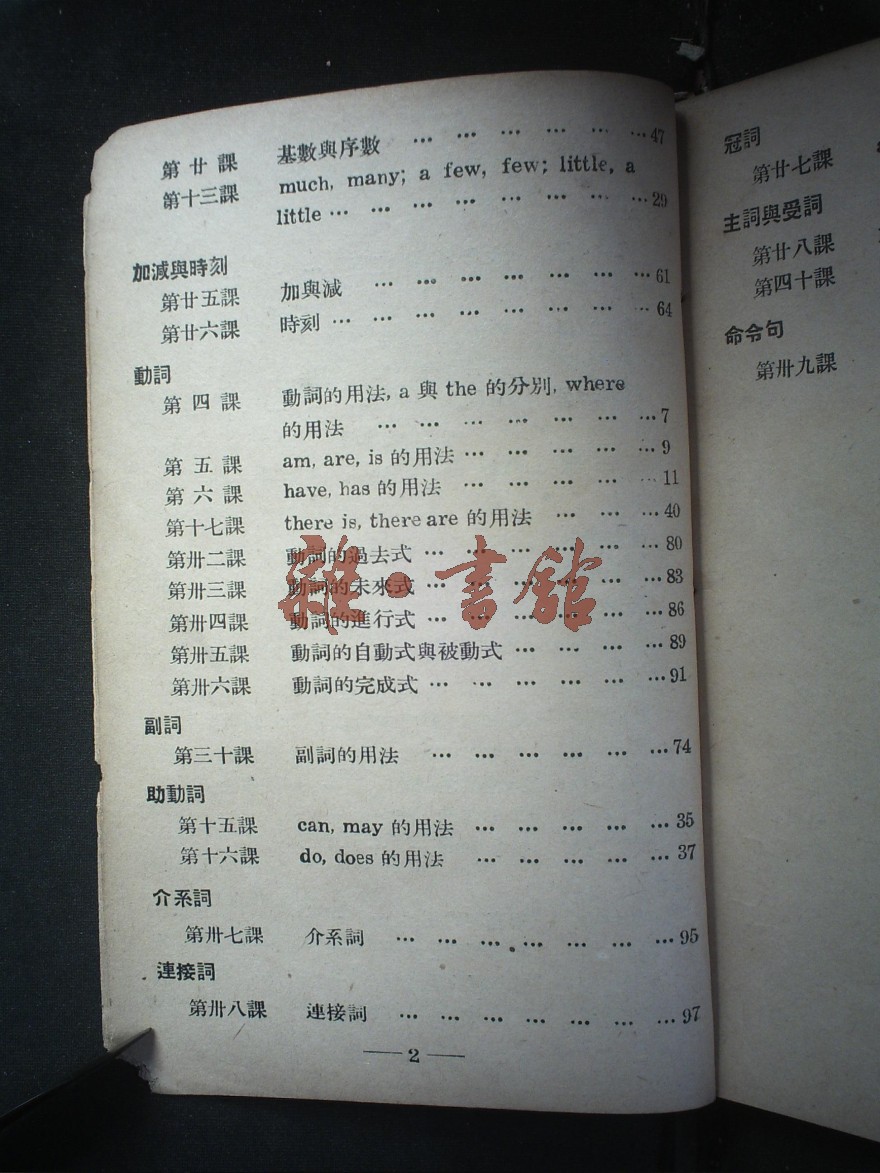 第廿課 基數與序數 … … … … … …47
第十三課 much, many; a few, few; little, a
little … … … … … … … …29
加減與時刻
第廿五課 加與減 … … … … … …61
第廿六課 時刻 … … … … … … … …64
動詞
第四課 動詞的用法, a 與 the 的分別, where
的用法 … … … … … … …7
第五課 am, are, is 的用法 … … … … …9
第六課 have, has 的用法 … … … … …11
第十七課 there is, there are 的用法 … … …40
第卅二課 動詞的過去式 … … … … … …80
第卅三課 動詞的未來式 … … … … … …83
第卅四課 動詞的進行式 … … … … … …86
第卅五課 動詞的自動式與被動式 … … … …89
第卅六課 動詞的完成式 … … … … … …91
副詞
第三十課 副詞的用法 … … … … … …74
助動詞
第十五課 can, may 的用法 … … … … …35
第十六課 do, does 的用法 … … … … …37
介系詞
第卅七課 介系詞 … … … … … … …95
連接詞
第卅八課 連接詞 … … … … … … …97
— 2 —
冠詞
第廿七課
主詞與受詞
第廿八課
第四十課
命令句
第卅九課
雜·書館